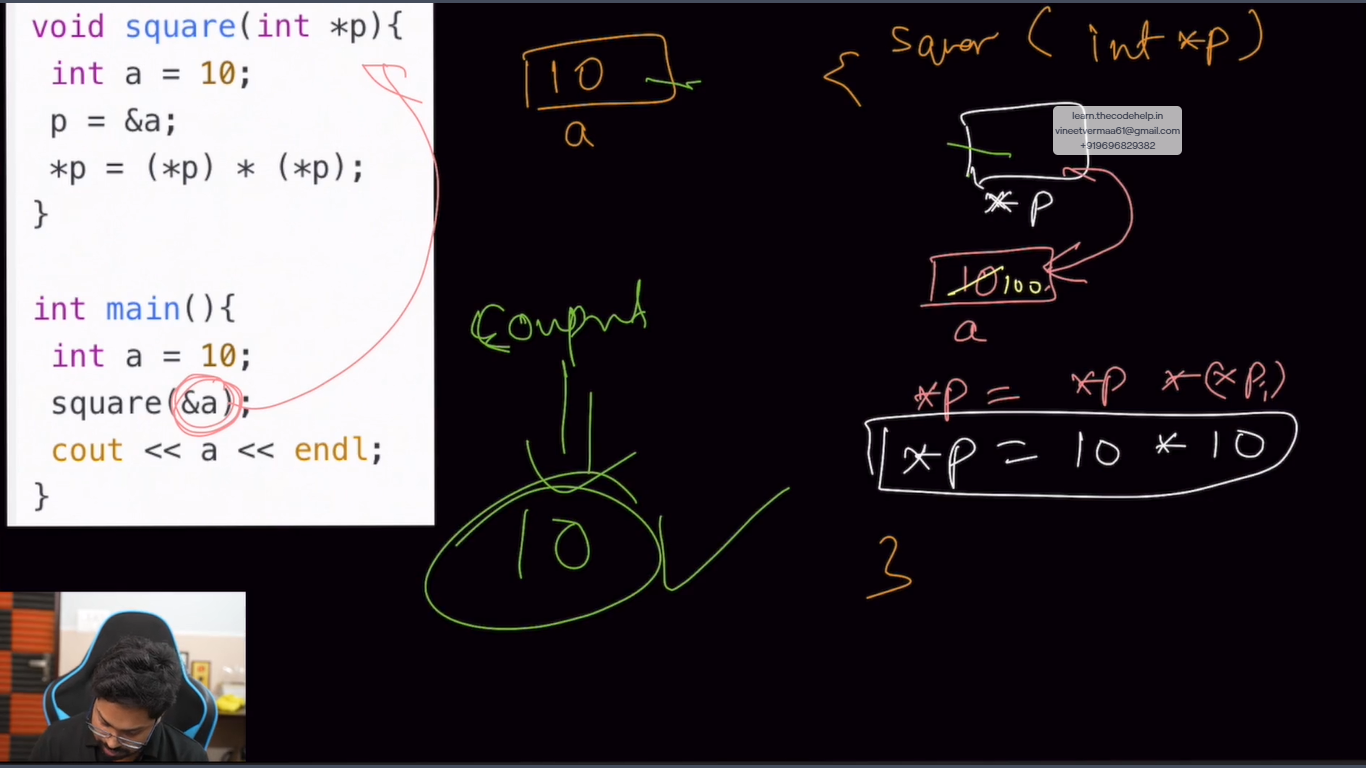 void square(int *p){
int a = 10;
p = &a;
*p = (*p) * (*p);
}
int main(){
int a = 10;
square(&a);
cout << a << endl;
}
10
a
10
{
int *p)
learn.thecodehelp.in
vineetvermaa61@gmail.com
+919696829382
* p
10 100
a
*p = *p *(*p)
*p = 10 * 10